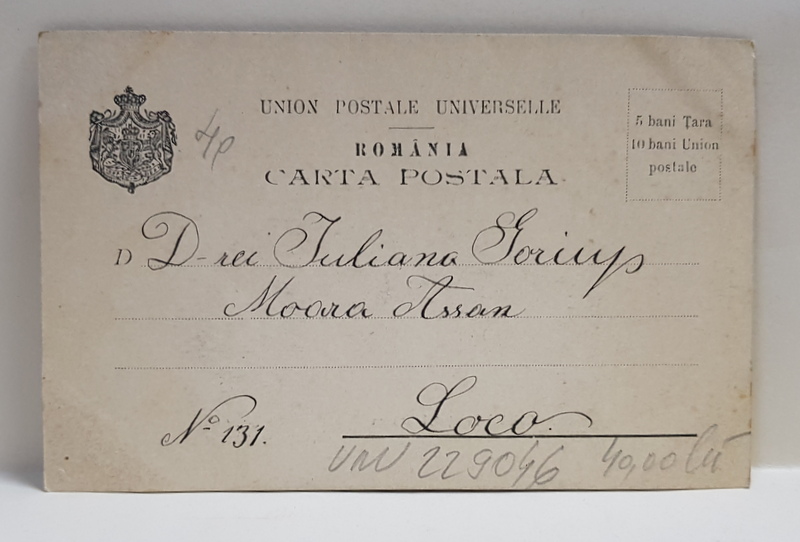 UNION POSTALE UNIVERSELLE
ROMÂNIA
CARTA POSTALA
5 bani Țara
10 bani Union
postale
40
D D-rei Iuliana Goriup
Moara Assan
Loco.
No 131.
229046 40,00 lei